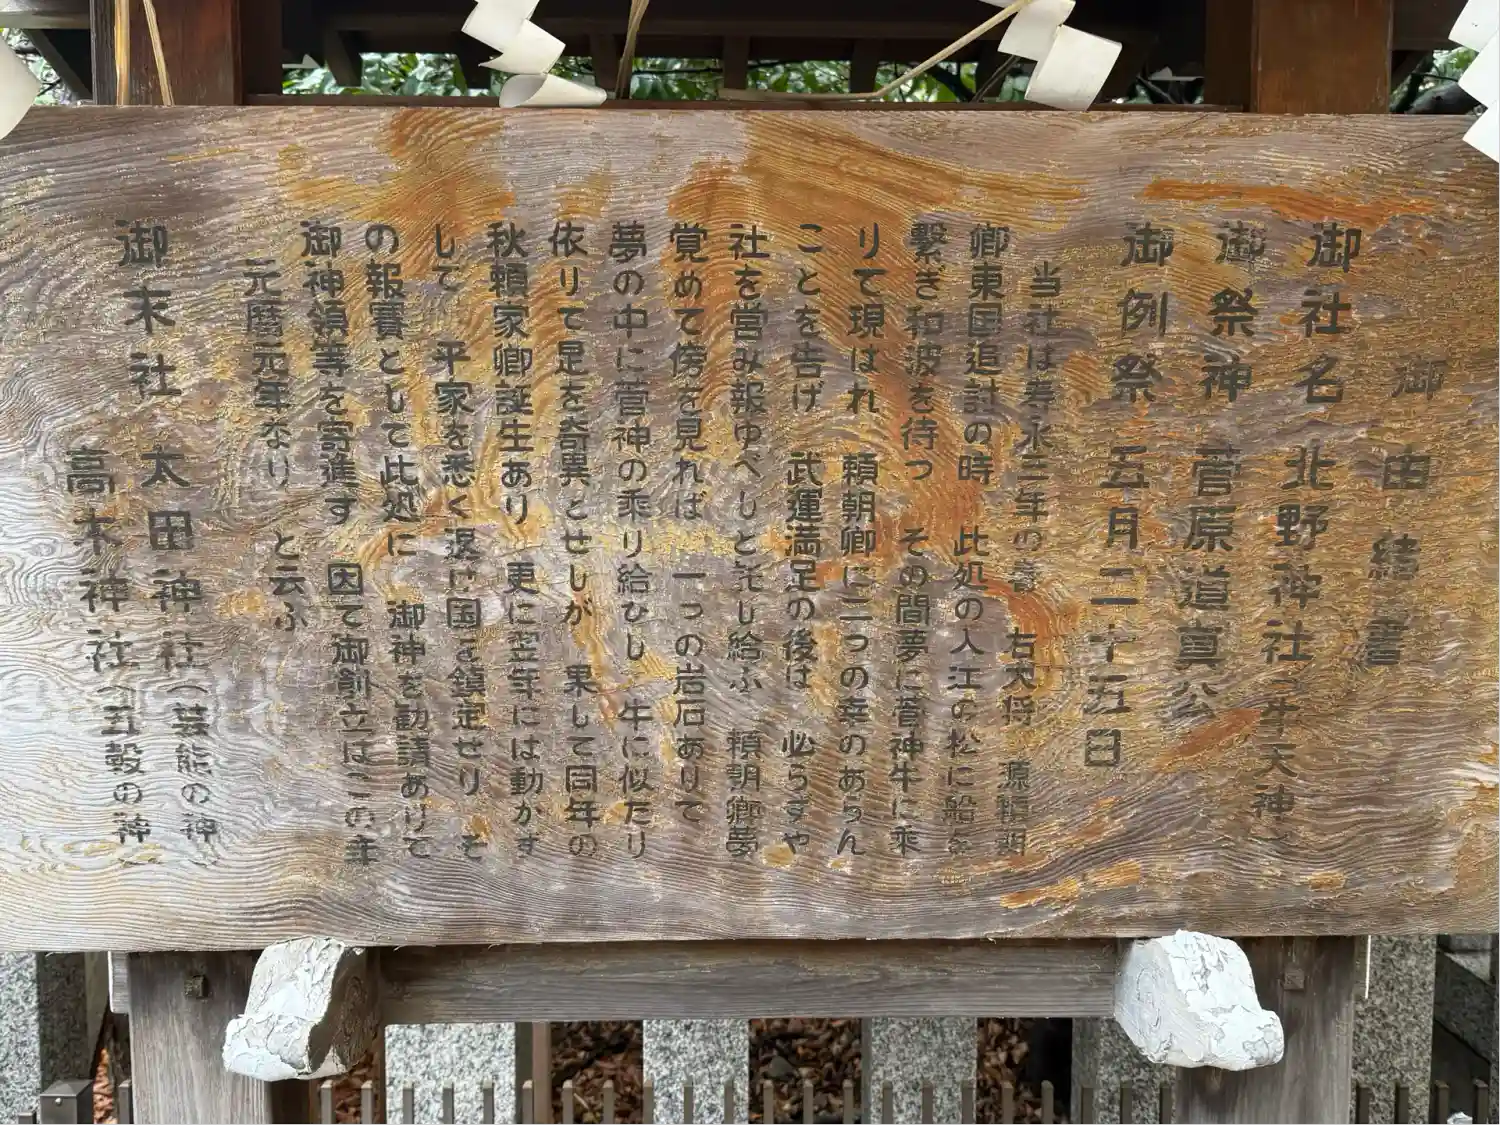 御由緒書
御社名 北野神社(牛天神)
御祭神 菅原道真公
御例祭 五月二十五日
当社は寿永三年の春 右大将 源頼朝
卿東国追討の時 此処の入江の松に船を
繋ぎ和波を待つ その間夢に菅神牛に乗
りて現はれ 頼朝卿に二つの幸のあらん
ことを告げ 武運満足の後は 必らずや
社を営み報ゆべしと託し給ふ 頼朝卿夢
覚めて傍を見れば 一つの岩石ありて
夢の中に菅神の乗り給ひし 牛に似たり
依りて是を奇異とせしが 果して同年の
秋頼家卿誕生あり 更に翌年には動かず
して 平家を悉く退け国を鎮定せり そ
の報賽として此処に 御神を勧請ありて
御神領等を寄進す 因て御創立はこの年
元暦元年なり と云ふ
御末社 太田神社(芸能の神)
高木神社(五穀の神)